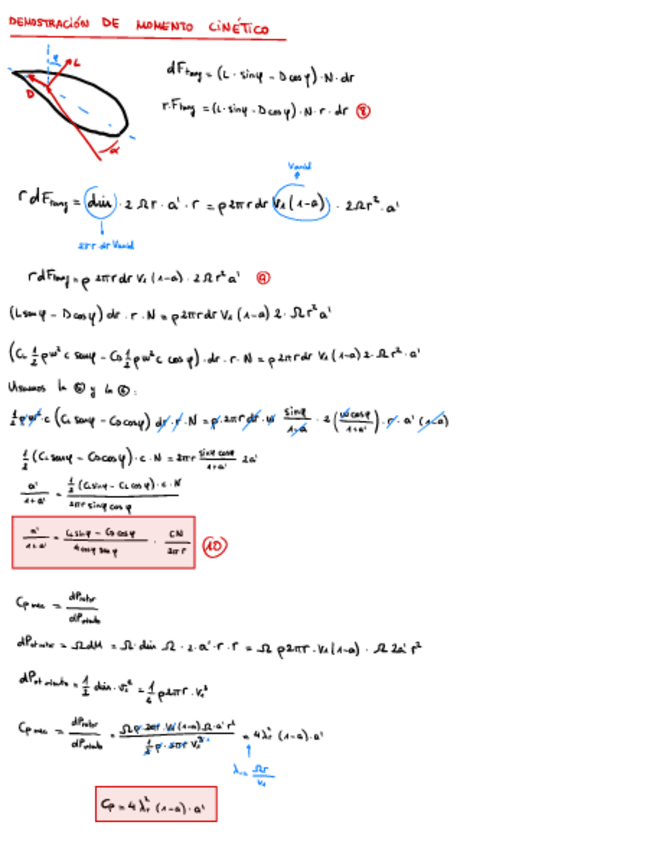 DEMOSTRACIÓN DE MOMENTO CINÉTICO
φ
L
D
α
dF_tang = (L · sinφ − D cosφ) · N · dr
r · F_tang = (L · sinφ − D cosφ) · N · r · dr ⑧
V_axial
r dF_tang = (dṁ) · 2 Ω r · a' · r = ρ 2π r dr V₁(1−a) · 2Ω r² · a'
2π r · dr V_axial
r dF_tang = ρ 2π r dr V₁ (1−a) · 2 Ω r² a' ⑨
(L sinφ − D cosφ) dr · r · N = ρ 2π r dr V₁ (1−a) 2 · Ω r² a'
(C_L ½ ρ w² c sinφ − C_D ½ ρ w² c cosφ) · dr · r · N = ρ 2π r dr V₁ (1−a) 2 · Ω r² · a'
Usamos la ⑤ y la ⑥:
½ ρ w² · c (C_L sinφ − C_D cosφ) dr · r · N = ρ · 2π r dr · w sinφ/(1−a) · 2 (w cosφ/(1+a')) · r · a' (1−a)
½ (C_L sinφ − C_D cosφ) · c · N = 2π r sinφ cosφ/(1+a') 2a'
a'/(1+a') = ½ (C_L sinφ − C_L cosφ) · c · N / 2π r sinφ cosφ
a'/(1+a') = (C_L sinφ − C_D cosφ)/(4 cosφ sinφ) · CN/(2π r) ⑩
Cp_mec = dP_rotor/dP_viento
dP_ot rotor = Ω dM = Ω · dṁ Ω · 2 · a' · r · r = Ω ρ 2π r · V₁(1−a) · Ω 2a' r²
dP_ot viento = ½ dṁ · v₁² = ½ ρ 2π r · V₁³
Cp_mec = dP_rotor/dP_viento = Ω ρ · 2π r · V₁ (1−a) Ω · a' r² / ½ ρ · 2π r V₁³ = 4 λr² (1−a) · a'
λr = Ωr/V₁
Cp = 4 λr² (1−a) · a'